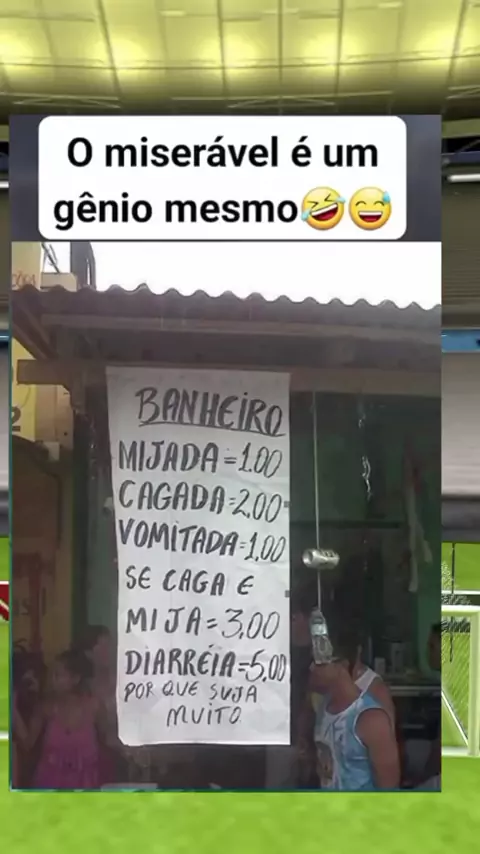 O miserável é um
gênio mesmo🤣😅
BANHEIRO
MIJADA=1.00
CAGADA=2.00
VOMITADA=1.00
SE CAGA E
MIJA=3,00
DIARRÉIA=5,00
POR QUE SUJA
MUITO